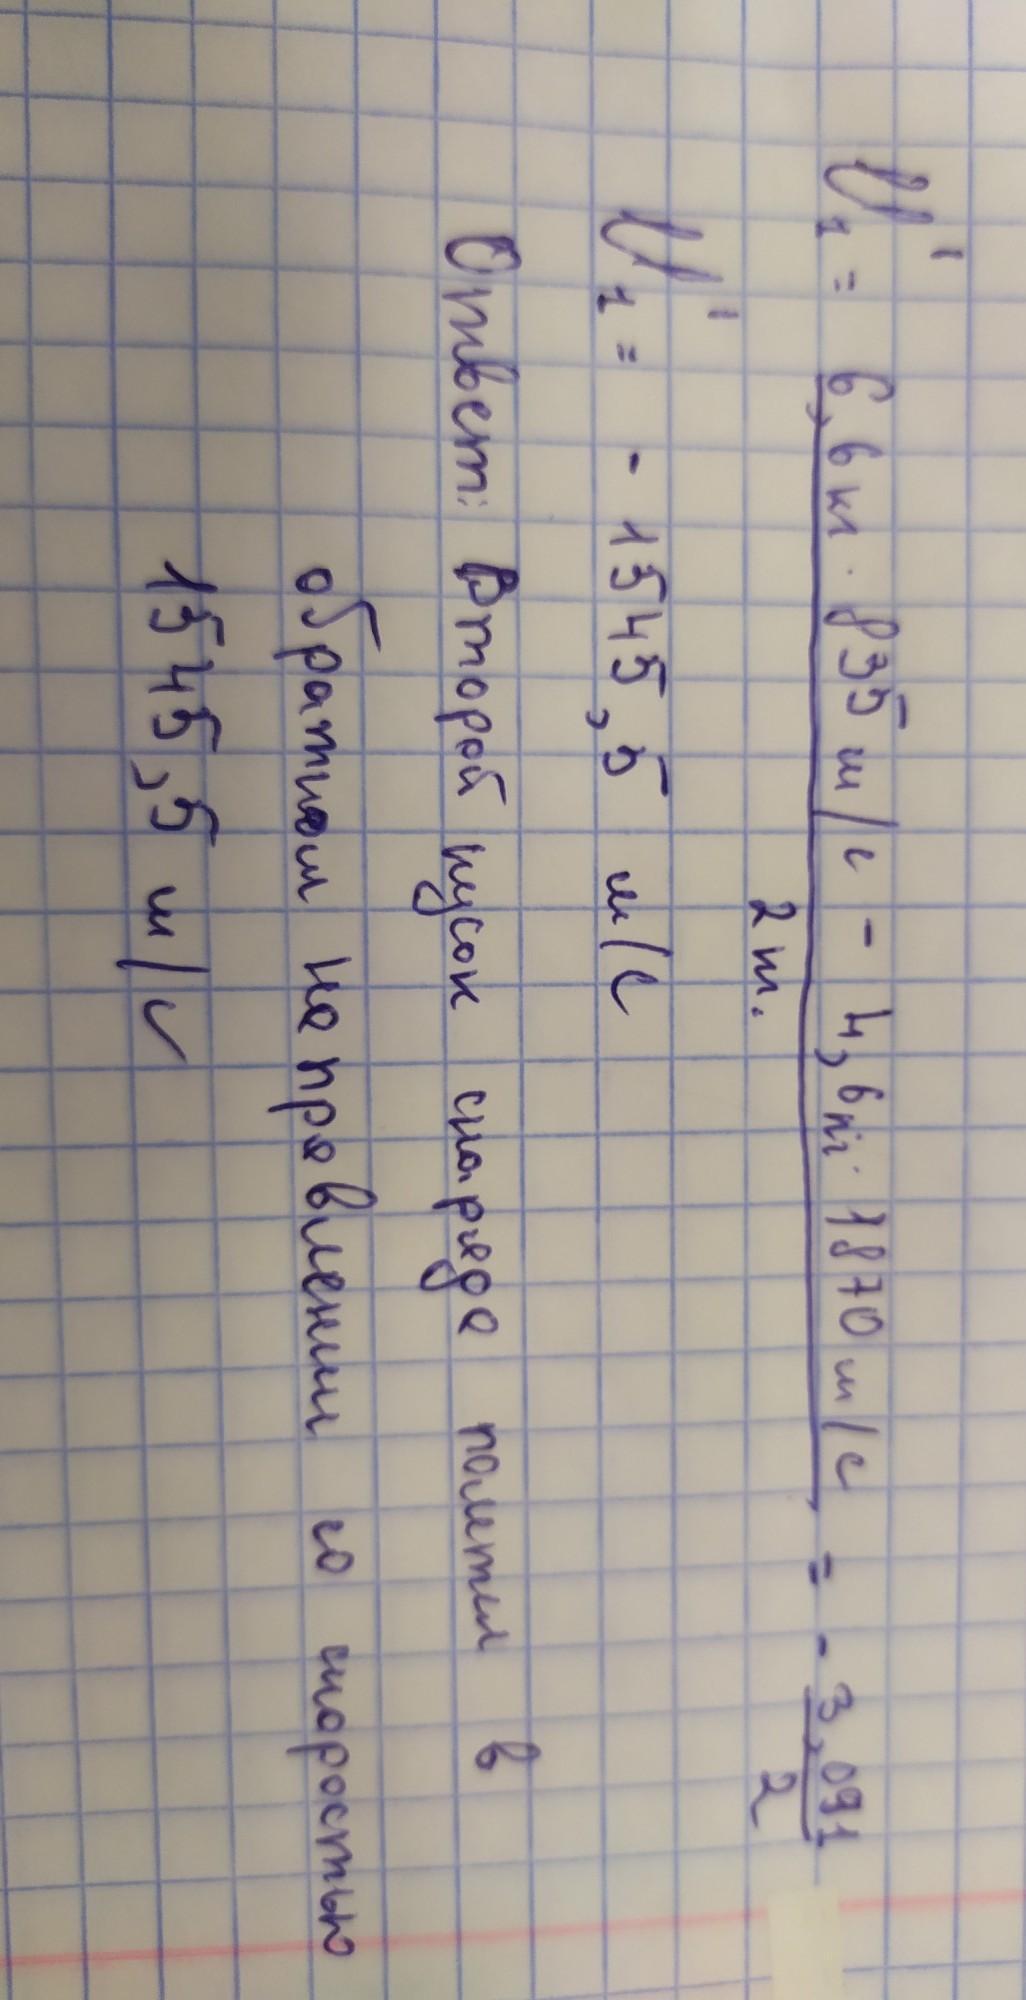 U'₂ = 6,6кг · 835м/с - 4,6кг · 1870м/с = - 3,091
2т. 2
U'₂ = - 1545,5 м/с
Ответ: Второй кусок снаряда полетил в
обратном направлении со скоростью
1545,5 м/с